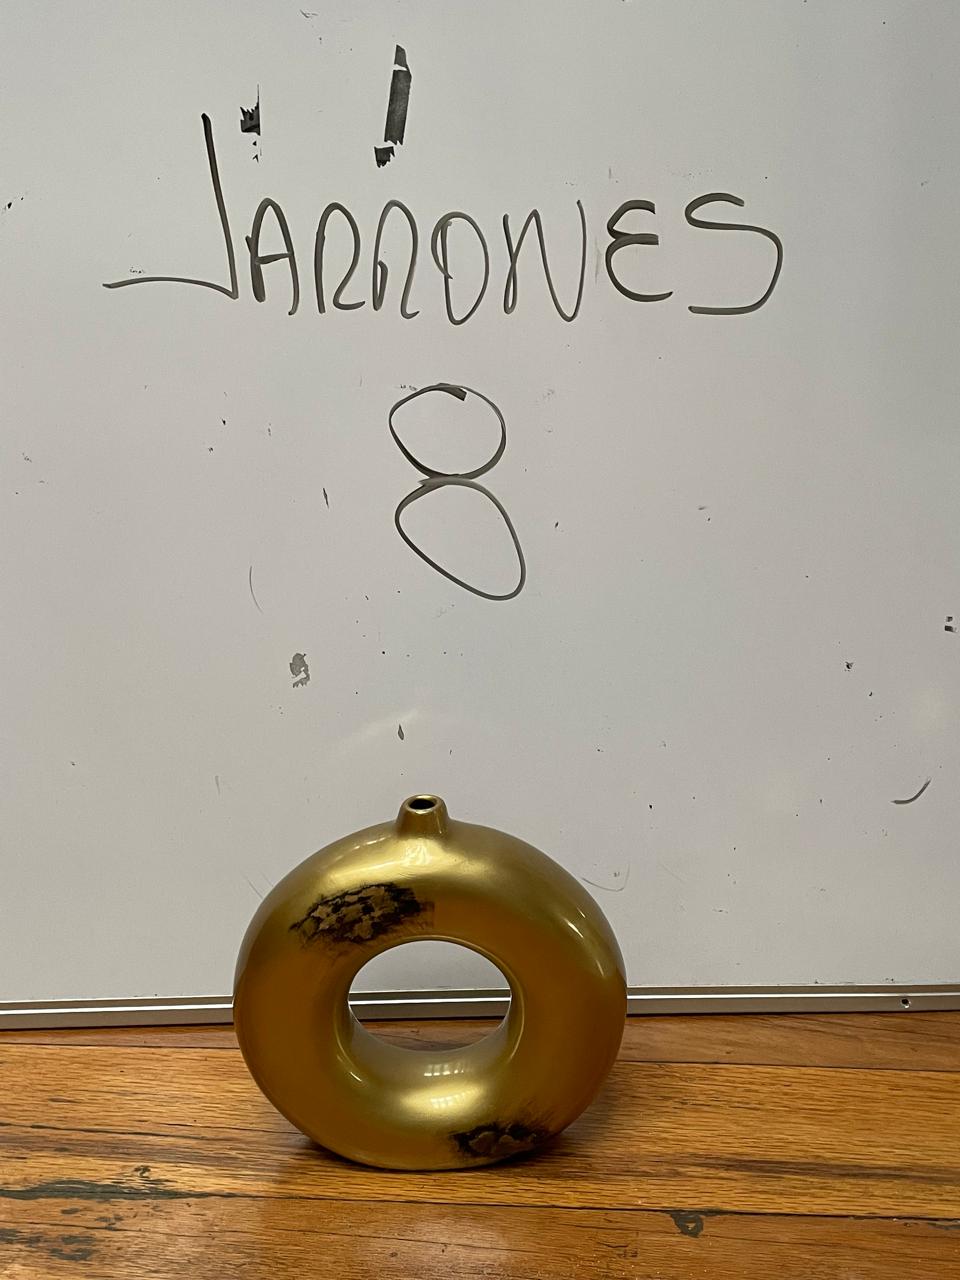 JARRONES
8